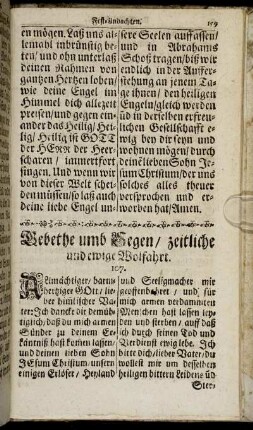 Fest-Andachten. 119
en mögen. Laß uns al-
lemahl inbrünstig be-
ten/ und ohn unterlaß
deinen Nahmen von
gantzen Hertzen loben/
wie deine Engel im
Himmel dich allezeit
preisen/ und gegen ein-
ander das Heilig/ Heil-
ig/ Heilig ist GOTT
der HERR der Heer-
scharen/ immerfort
singen. Und wenn wir
von dieser Welt schei-
den müssen/ so laß auch
deine liebe Engel un-
sere Seelen auffassen/
und in Abrahams
Schoß tragen/ biß wir
endlich in der Auffer-
stehung an jenem Ta-
ge ihnen/ den heiligen
Engeln/ gleich werden
uñ in derselben erfreu-
lichen Gesellschafft e-
wig bey dir seyn und
wohnen mögen/ durch
deinē lieben Sohn Je-
sum Christum/ der uns
solches alles theuer
versprochen und er-
worben hat/ Amen.
Gebethe umb Segen/ zeitliche
und ewige Wolfahrt.
107.
ALmächtiger/ barm-
hertziger GOtt/ lie-
ber himlischer Va-
ter: Ich dancke dir demü-
tiglich/ daß du mich armen
Sünder zu deinem Er-
käntniß hast kommen lassen/
und deinen lieben Sohn
JEsum Christum/ unsern
einigen Erlöser/ Heyland
und Seeligmacher mir
geoffenbaret/ und für
mich armen verdammten
Menschen hast lassen ley-
den und sterben/ auff daß
ich durch seinen Tod und
Verdienst ewig lebe. Ich
bitte dich/ lieber Vater/ du
wollest mir um desselben
heiligen bittern Leidens uñ
Ster-